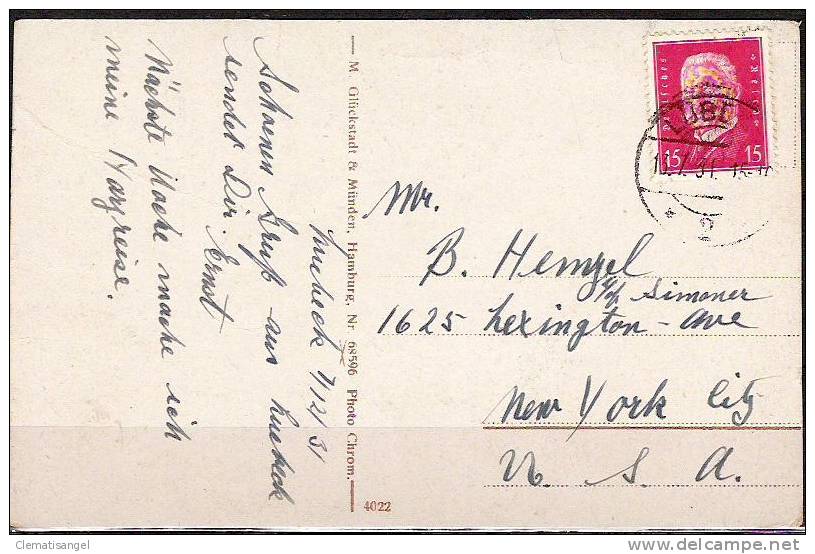 Luebeck 7/12/31
Schoenen Gruß aus Luebeck
sendet Dir Ernst
Nächste Woche mache ich
meine Harzreise.
M. Glückstadt & Münden, Hamburg, Nr 68596 Photo Chrom.
4022
Deutsches Reich
15 15
LÜBE
Mr.
B. Hemzel
c/o Simoner
1625 Lexington - Ave
New York City
U. S. A.
Clematisangel
delcampe.net